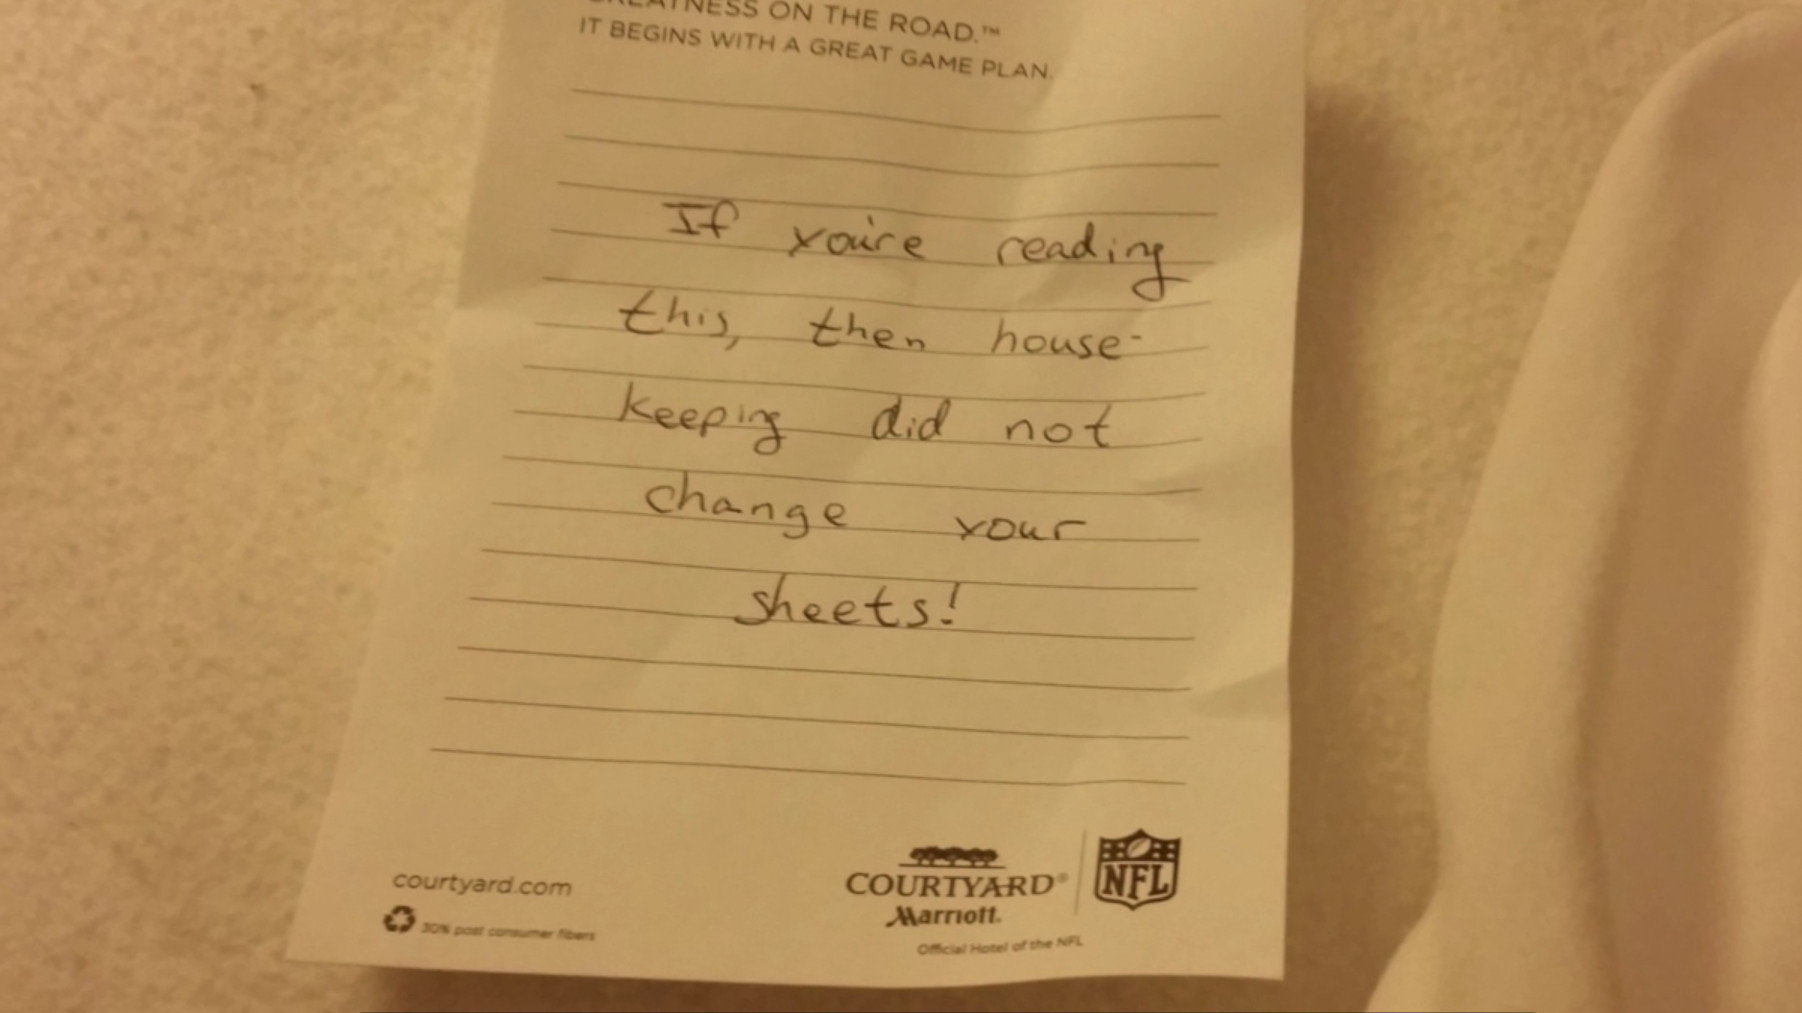 GREATNESS ON THE ROAD.™
IT BEGINS WITH A GREAT GAME PLAN.
If you're reading
this, then house-
keeping did not
change your
sheets!
courtyard.com
30% post consumer fibers
COURTYARD®
Marriott.
NFL
Official Hotel of the NFL